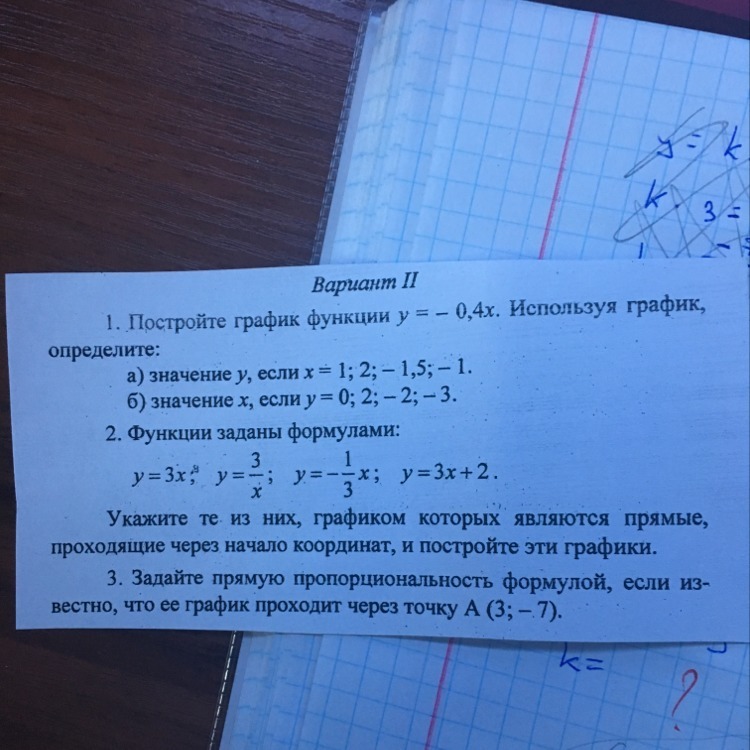 y = k
k 3 =
Вариант II
1. Постройте график функции y = – 0,4x. Используя график,
определите:
а) значение y, если x = 1; 2; – 1,5; – 1.
б) значение x, если y = 0; 2; – 2; – 3.
2. Функции заданы формулами:
y = 3x; y = 3/x; y = –1/3 x; y = 3x + 2.
Укажите те из них, графиком которых являются прямые,
проходящие через начало координат, и постройте эти графики.
3. Задайте прямую пропорциональность формулой, если из-
вестно, что ее график проходит через точку А (3; – 7).
k =
?